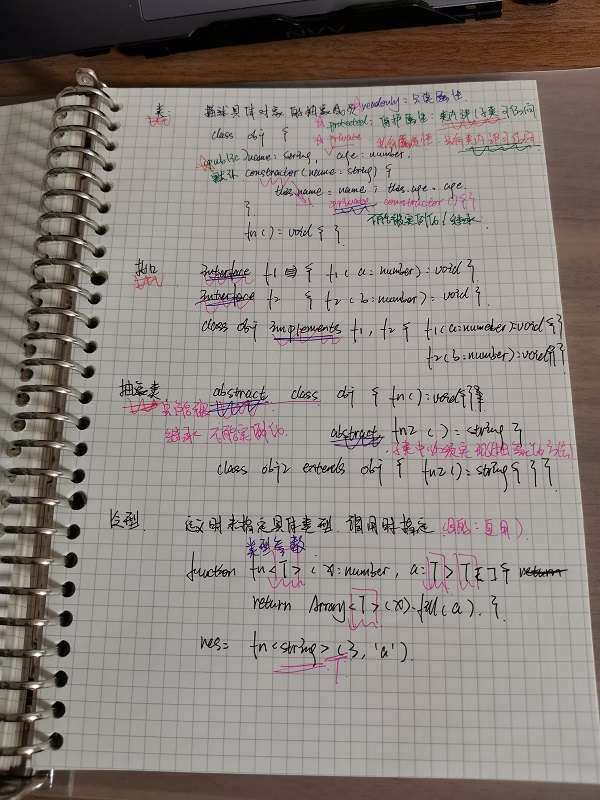 NVV
类 描述具体对象的抽象 readonly: 只读属性.
class obj { protected: 保护属性: 类内部|子类可访问
private 私有属性: 只有类内部可访问
(public) name: string, age: number.
默认 constructor (name: string) {
this.name = name; this.age = age.
} private constructor () {}
fn(): void { } 不能被实例化/继承
接口 interface f1 { f1 (a: number): void }
interface f2 { f2 (b: number): void }.
class obj implements f1, f2 { f1 (a: number): void { }
f2 (b: number): void { } }
抽象类 abstract class obj { fn (): void { }
只能被
继承 不能实例化. abstract fn2 (): string }
子类中必须实现
class obj2 extends obj { fn2 (): string { } }
泛型. 定义时未指定具体类型 调用时指定 (目的: 复用)
类型参数
function fn <T> (x: number, a: T) T[] { return
return Array <T> (x).fill(a). }
res = fn <string> (3, 'a')
T